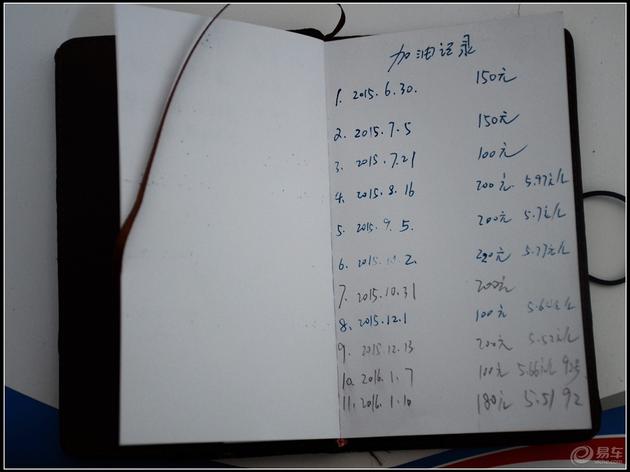 加油记录
1. 2015.6.30. 150元
2. 2015.7.5 150元
3. 2015.7.21 100元
4. 2015.8.16 200元 5.97元/L
5. 2015.9.5. 200元 5.7元/L
6. 2015.10.2. 220元 5.77元/L
7. 2015.10.31 200元
8. 2015.12.1 100元
9. 2015.12.13 200元 5.52元/L
10. 2016.1.7 100元 5.66元/L 92号
11. 2016.1.10 180元 5.51 92
易车